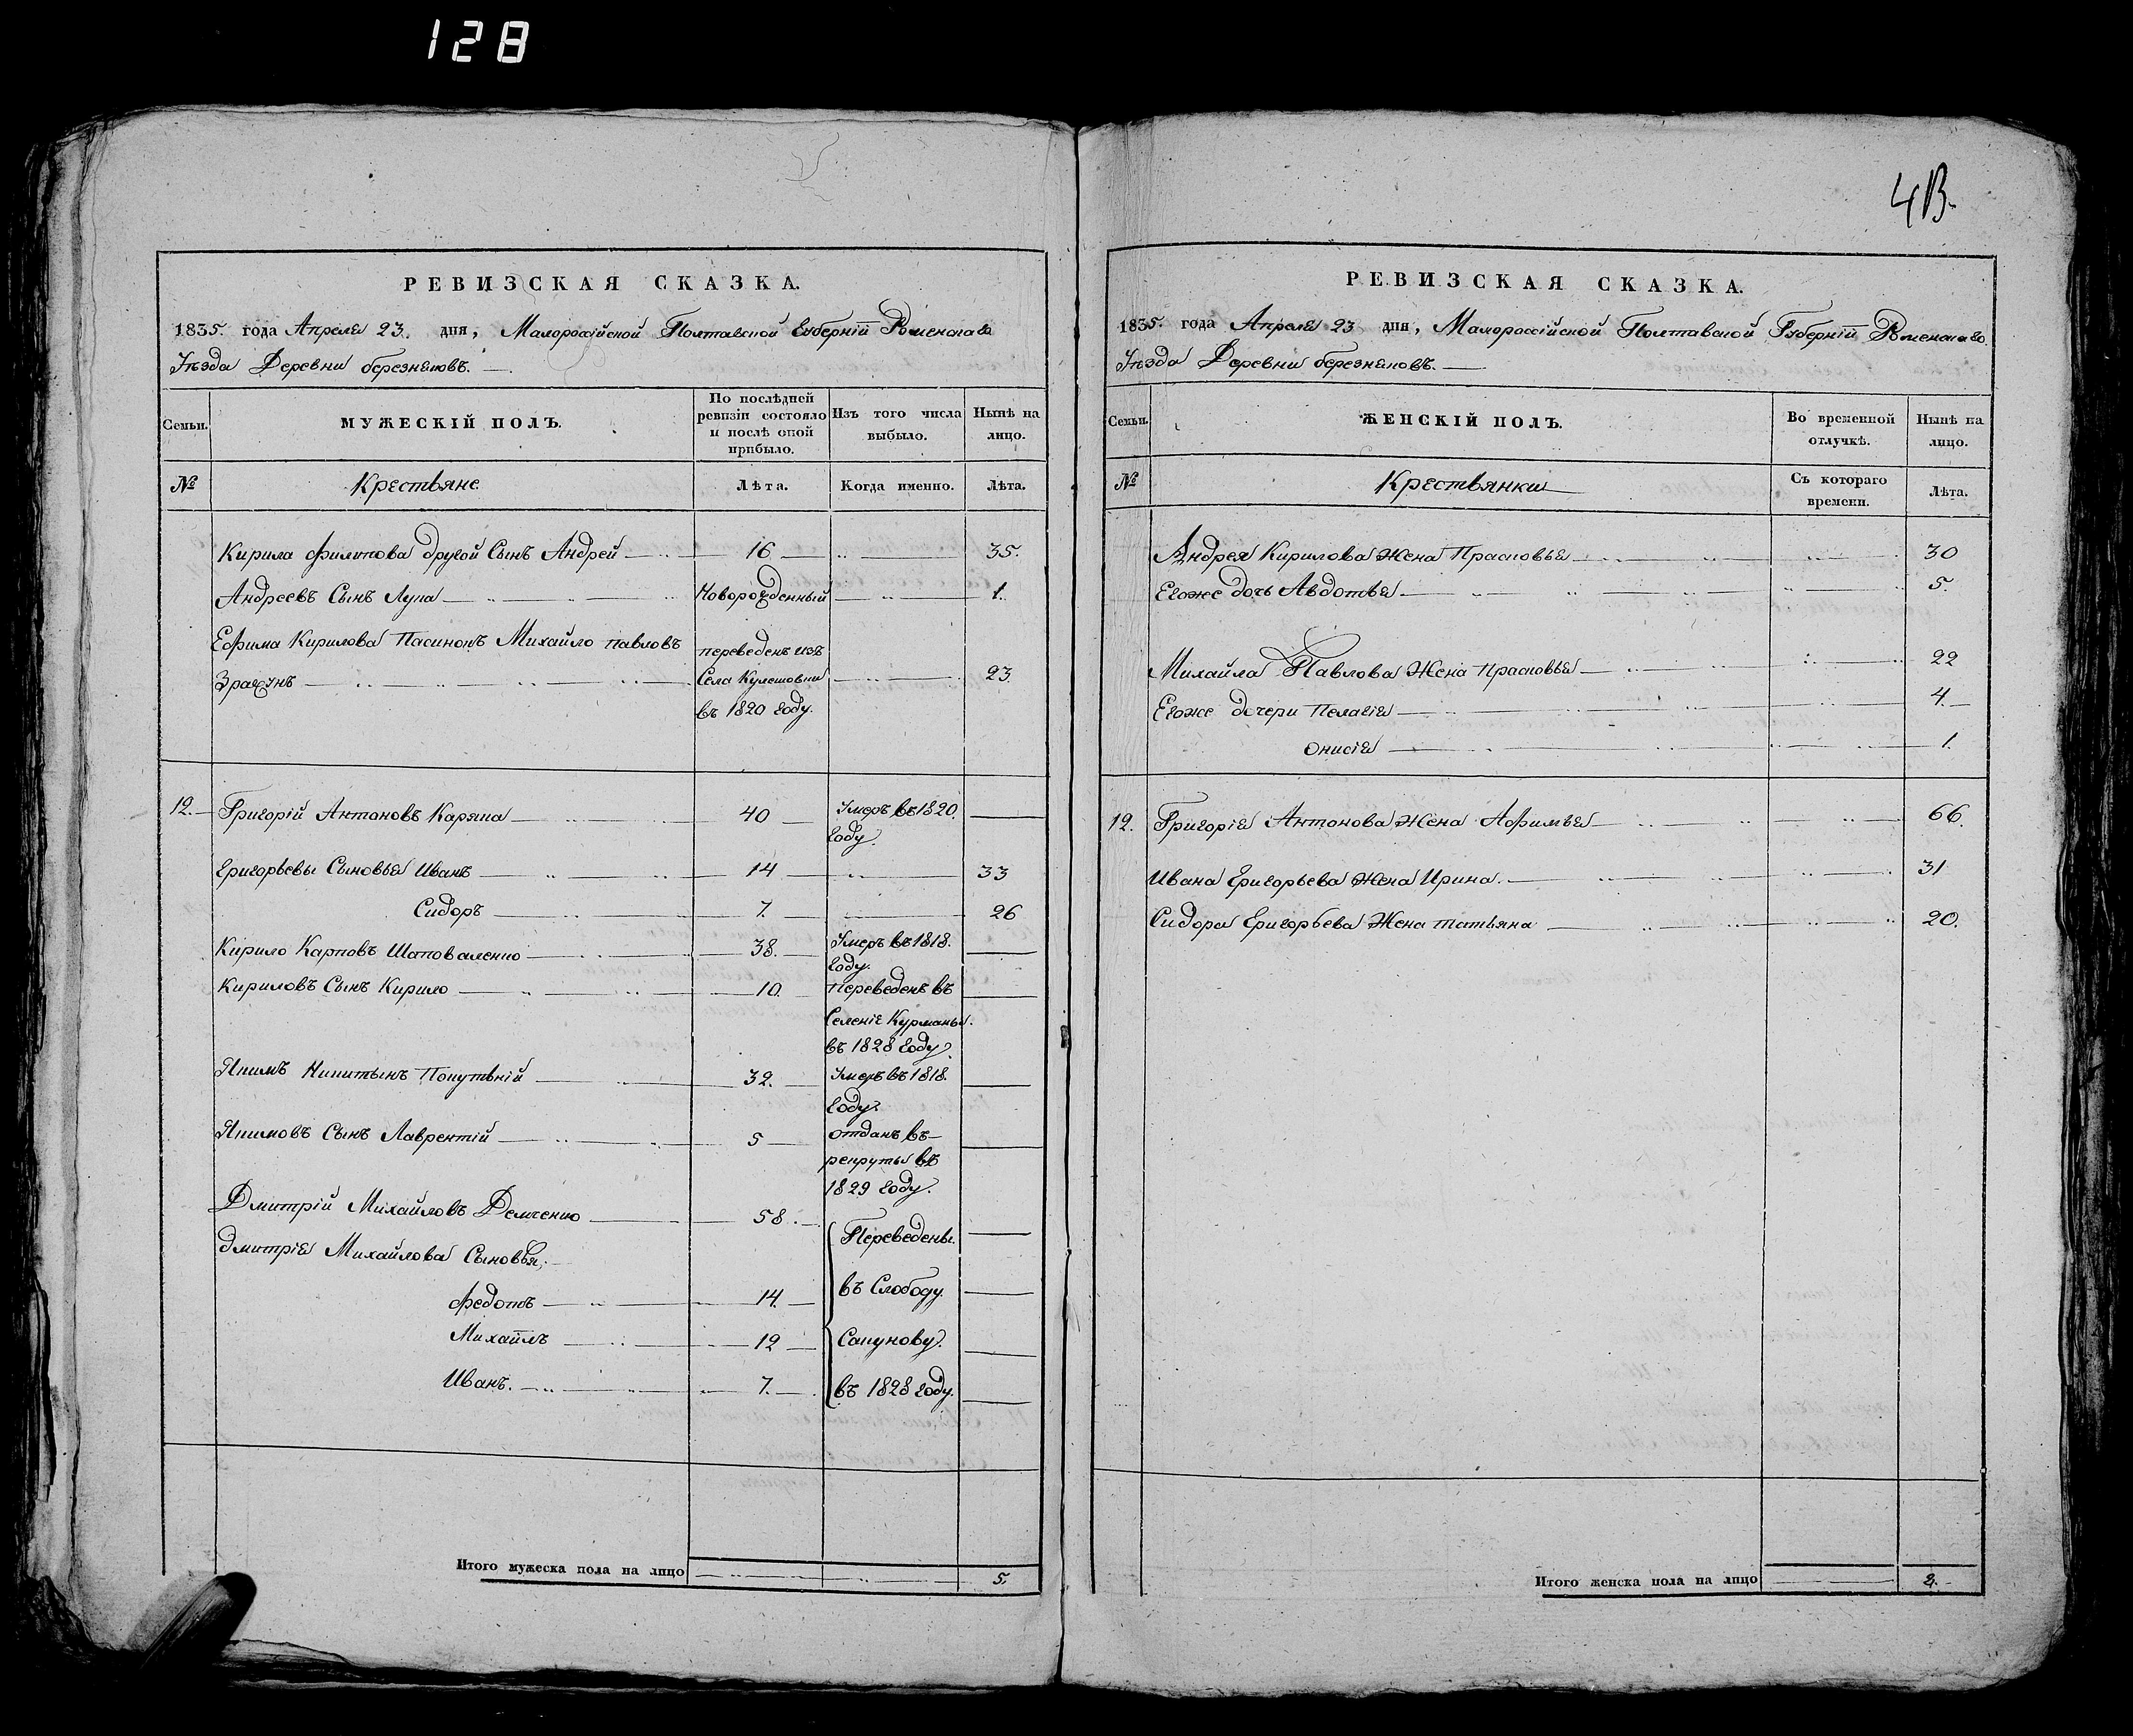 128
4В.
РЕВИЗСКАЯ СКАЗКА.
1835. года Апреля 23. дня, Малороссійской Полтавской Губерніи Роменскаго
Уѣзда Деревни березняковъ.
Семьи.
МУЖЕСКІЙ ПОЛЪ.
По послѣдней ревизіи состояло и послѣ оной прибыло.
Изъ того числа выбыло.
Нынѣ на лицо.
№ Крестьяне. Лѣта. Когда именно. Лѣта.
Кирила Филипова другой Сынъ Андрей 16 35.
Андреевъ Сынъ Лупа Новорожденный 1.
Ефима Кирилова Пасинокъ Михайло павловъ переведенъ изъ
Зрачунъ Села Кулешовки 23.
въ 1820 году.
12. Григорій Антоновъ Каряка 40 Умеръ въ 1820.
году.
Григорьевы Сыновья Иванъ 14 33
Сидоръ 7. 26
Кирило Карповъ Шаповаленко 38. Умеръ въ 1818.
году.
Кириловъ Сынъ Кирило 10. переведенъ въ
Селеніе Курманы.
въ 1828 году.
Якимъ Никитинъ Попутній 32. Умеръ въ 1818.
году.
Якимовъ Сынъ Лаврентій 5 отданъ въ
рекруты въ
1829 году.
Дмитрій Михайловъ Демченко 58. Переведены.
дмитрія Михайлова Сыновья;
Федотъ 14. въ Слободу
Михаилъ 12 Сапунову.
Иванъ. 7. въ 1828 году.
Итого мужеска пола на лицо 5.
РЕВИЗСКАЯ СКАЗКА.
1835. года Апреля 23 дня, Малороссійской Полтавской Губерніи Роменскаго
Уѣзда Деревни березняковъ.
Семьи.
ЖЕНСКІЙ ПОЛЪ.
Во временной отлучкѣ.
Нынѣ на лицо.
№ Крестьянки Съ котораго времени. Лѣта.
Андрея Кирилова Жена Прасковья 30
Егоже дочь Авдотья 5.
Михайла Павлова Жена прасковья 22
Егоже дочери Пелагія 4.
Онисія 1.
12. Григорія Антонова Жена Афимья 66.
Ивана Григорьева Жена Ирина. 31
Сидора Григорьева Жена татьяна 20.
Итого женска пола на лицо 2.